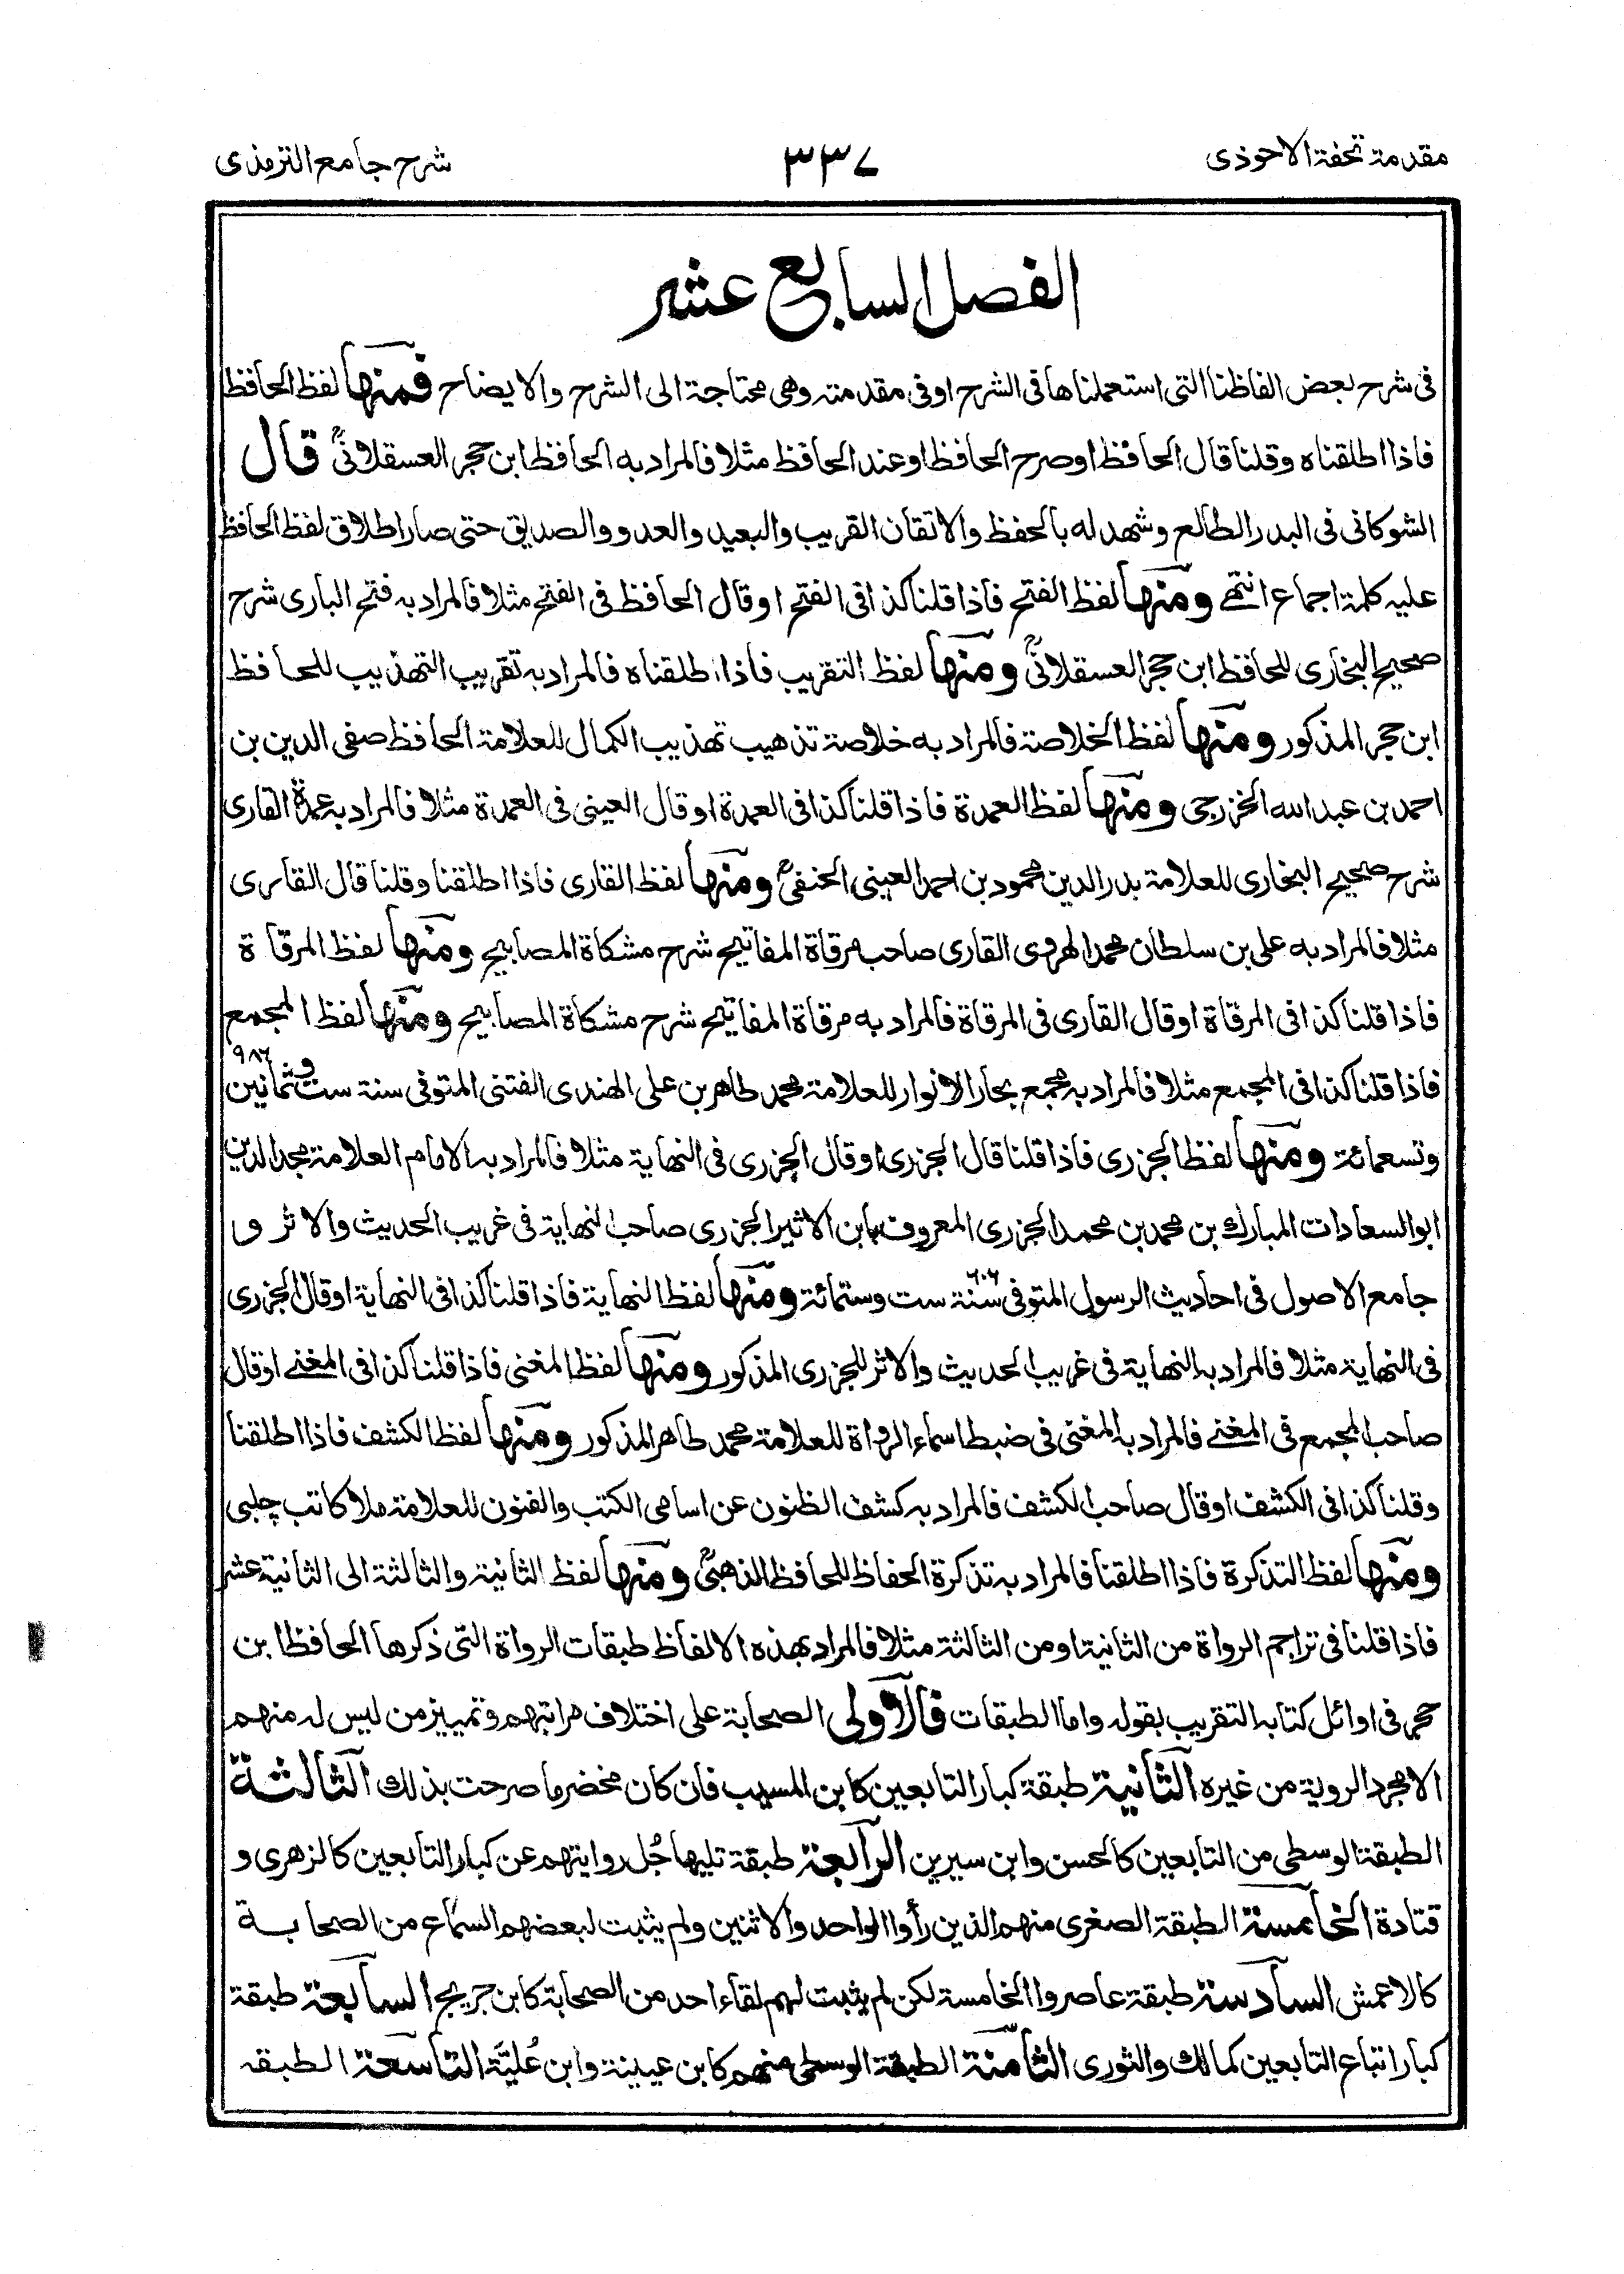 مقدمة تحفة الاحوذی
۳۳۷
شرح جامع الترمذی
الفصل السابع عشر
فی شرح بعض الفاظنا التی استعملناها فی الشرح او فی مقدمته وهی محتاجة الی الشرح والایضاح فمنها لفظ الحافظ
فاذا اطلقناه وقلنا قال الحافظ او صرح الحافظ او عند الحافظ مثلا فالمراد به الحافظ ابن حجر العسقلانیؒ قال
الشوکانی فی البدر الطالع وشهد له بالحفظ والاتقان القریب والبعید والعدو والصدیق حتی صار اطلاق لفظ الحافظ
علیه کلمة اجماع انتهے ومنها لفظ الفتح فاذا قلنا کذا فی الفتح او قال الحافظ فی الفتح مثلا فالمراد به فتح الباری شرح
صحیح البخاری للحافظ ابن حجر العسقلانیؒ ومنها لفظ التقریب فاذا اطلقناه فالمراد به تقریب التهذیب للحافظ
ابن حجر المذکور ومنها لفظ الخلاصة فالمراد به خلاصة تذهیب تهذیب الکمال للعلامة الحافظ صفی الدین بن
احمد بن عبد الله الخزرجی ومنها لفظ العمدة فاذا قلنا کذا فی العمدة او قال العینی فی العمدة مثلا فالمراد به عمدة القاری
شرح صحیح البخاری للعلامة بدر الدین محمود بن احمد العینی الحنفیؒ ومنها لفظ القاری فاذا اطلقنا وقلنا قال القاری
مثلا فالمراد به علی بن سلطان محمد الهروی القاری صاحب مرقاة المفاتیح شرح مشکاة المصابیح ومنها لفظ المرقاة
فاذا قلنا کذا فی المرقاة او قال القاری فی المرقاة فالمراد به مرقاة المفاتیح شرح مشکاة المصابیح ومنها لفظ المجمع
فاذا قلنا کذا فی المجمع مثلا فالمراد به مجمع بحار الانوار للعلامة محمد طاهر بن علی الهندی الفتنی المتوفی سنة ست وثمانین ۹۸۶
وتسعمائة ومنها لفظ الجزری فاذا قلنا قال الجزری او قال الجزری فی النهایة مثلا فالمراد به الامام العلامة مجد الدین
ابو السعادات المبارك بن محمد بن محمد الجزری المعروف بابن الاثیر الجزری صاحب النهایة فی غریب الحدیث والاثر و
جامع الاصول فی احادیث الرسول المتوفی سنة ۶۰۶ ست وستمائة ومنها لفظ النهایة فاذا قلنا کذا فی النهایة او قال الجزری
فی النهایة مثلا فالمراد به النهایة فی غریب الحدیث والاثر للجزری المذکور ومنها لفظ المغنی فاذا قلنا کذا فی المغنے او قال
صاحب المجمع فی المغنے فالمراد به المغنی فی ضبط اسماء الرواة للعلامة محمد طاهر المذکور ومنها لفظ الکشف فاذا اطلقنا
وقلنا کذا فی الکشف او قال صاحب الکشف فالمراد به کشف الظنون عن اسامی الکتب والفنون للعلامة ملا کاتب چلبی
ومنها لفظ التذکرة فاذا اطلقنا فالمراد به تذکرة الحفاظ للحافظ الذهبیؒ ومنها لفظ الثانیة والثالثة الی الثانیة عشر
فاذا قلنا فی تراجم الرواة من الثانیة او من الثالثة مثلا فالمراد بهذه الالفاظ طبقات الرواة التی ذکرها الحافظ ابن
حجر فی اوائل کتابه التقریب بقوله واما الطبقات فالاولی الصحابة علی اختلاف مراتبهم وتمییز من لیس له منهم
الا مجرد الرویة من غیره الثانیة طبقة کبار التابعین کابن المسیب فان کان مخضرما صرحت بذلك الثالثة
الطبقة الوسطی من التابعین کالحسن وابن سیرین الرابعة طبقة تلیها جُل روایتهم عن کبار التابعین کالزهری و
قتادة الخامسة الطبقة الصغری منهم الذین رأوا الواحد والاثنین ولم یثبت لبعضهم السماع من الصحابة
کالاعمش السادسة طبقة عاصروا الخامسة لکن لم یثبت لهم لقاء احد من الصحابة کابن جریج السابعة طبقة
کبار اتباع التابعین کمالك والثوری الثامنة الطبقة الوسطی منهم کابن عیینة وابن عُلیَّة التاسعة الطبقه